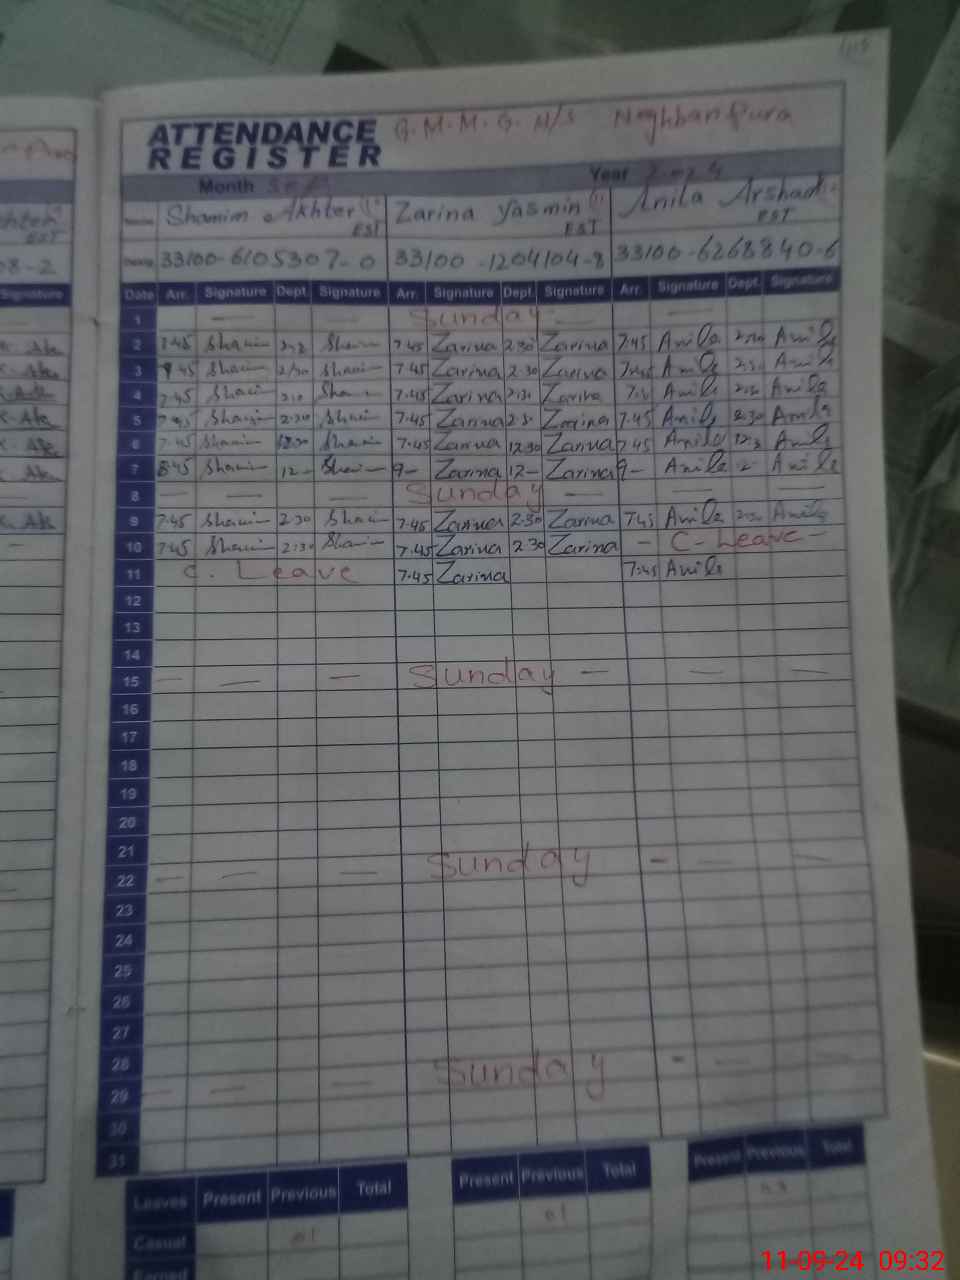 ATTENDANCE REGISTER G.M.M.G. H/S Neghban Pura
Month Sep Year 2024
Shamim Akhter EST Zarina Yasmin EST Anila Arshad EST
33100-6105307-0 33100-1204104-8 33100-6268840-6
Date Arr. Signature Dept. Signature Arr. Signature Dept. Signature Arr. Signature Dept. Signature
1 — — Sunday — —
2 7.45 Shamim Shamim 7.45 Zarina 2.30 Zarina 7.45 Anila Anila
3 7.45 Shamim 2.30 Shamim 7.45 Zarina 2.30 Zarina 7.45 Anila Anila
4 7.45 Shamim Sham 7.45 Zarina 2.30 Zarina Anila Anila
5 7.45 Shamim 2.30 Shamim 7.45 Zarina 2.30 Zarina 7.45 Anila 2.30 Anila
6 7.45 Shamim 12.30 Shamim 7.45 Zarina 12.30 Zarina 7.45 Anila Anila
7 8.45 Shamim 12- Shamim 9- Zarina 12- Zarina 9- Anila Anila
8 — — — Sunday — — —
9 7.45 Shamim 2.30 Shamim 7.45 Zarina 2.30 Zarina 7.45 Anila 2.30 Anila
10 7.45 Shamim 2.30 Shamim 7.45 Zarina 2.30 Zarina - C-Leave -
11 C. Leave 7.45 Zarina 7.45 Anila
12
13
14
15 — — — Sunday — — —
16
17
18
19
20
21
22 — — — Sunday - — —
23
24
25
26
27
28
29 — — — Sunday - — —
30
31
Leaves Present Previous Total Present Previous Total Present Previous Total
Casual 01 01 03
Earned
11-09-24 09:32